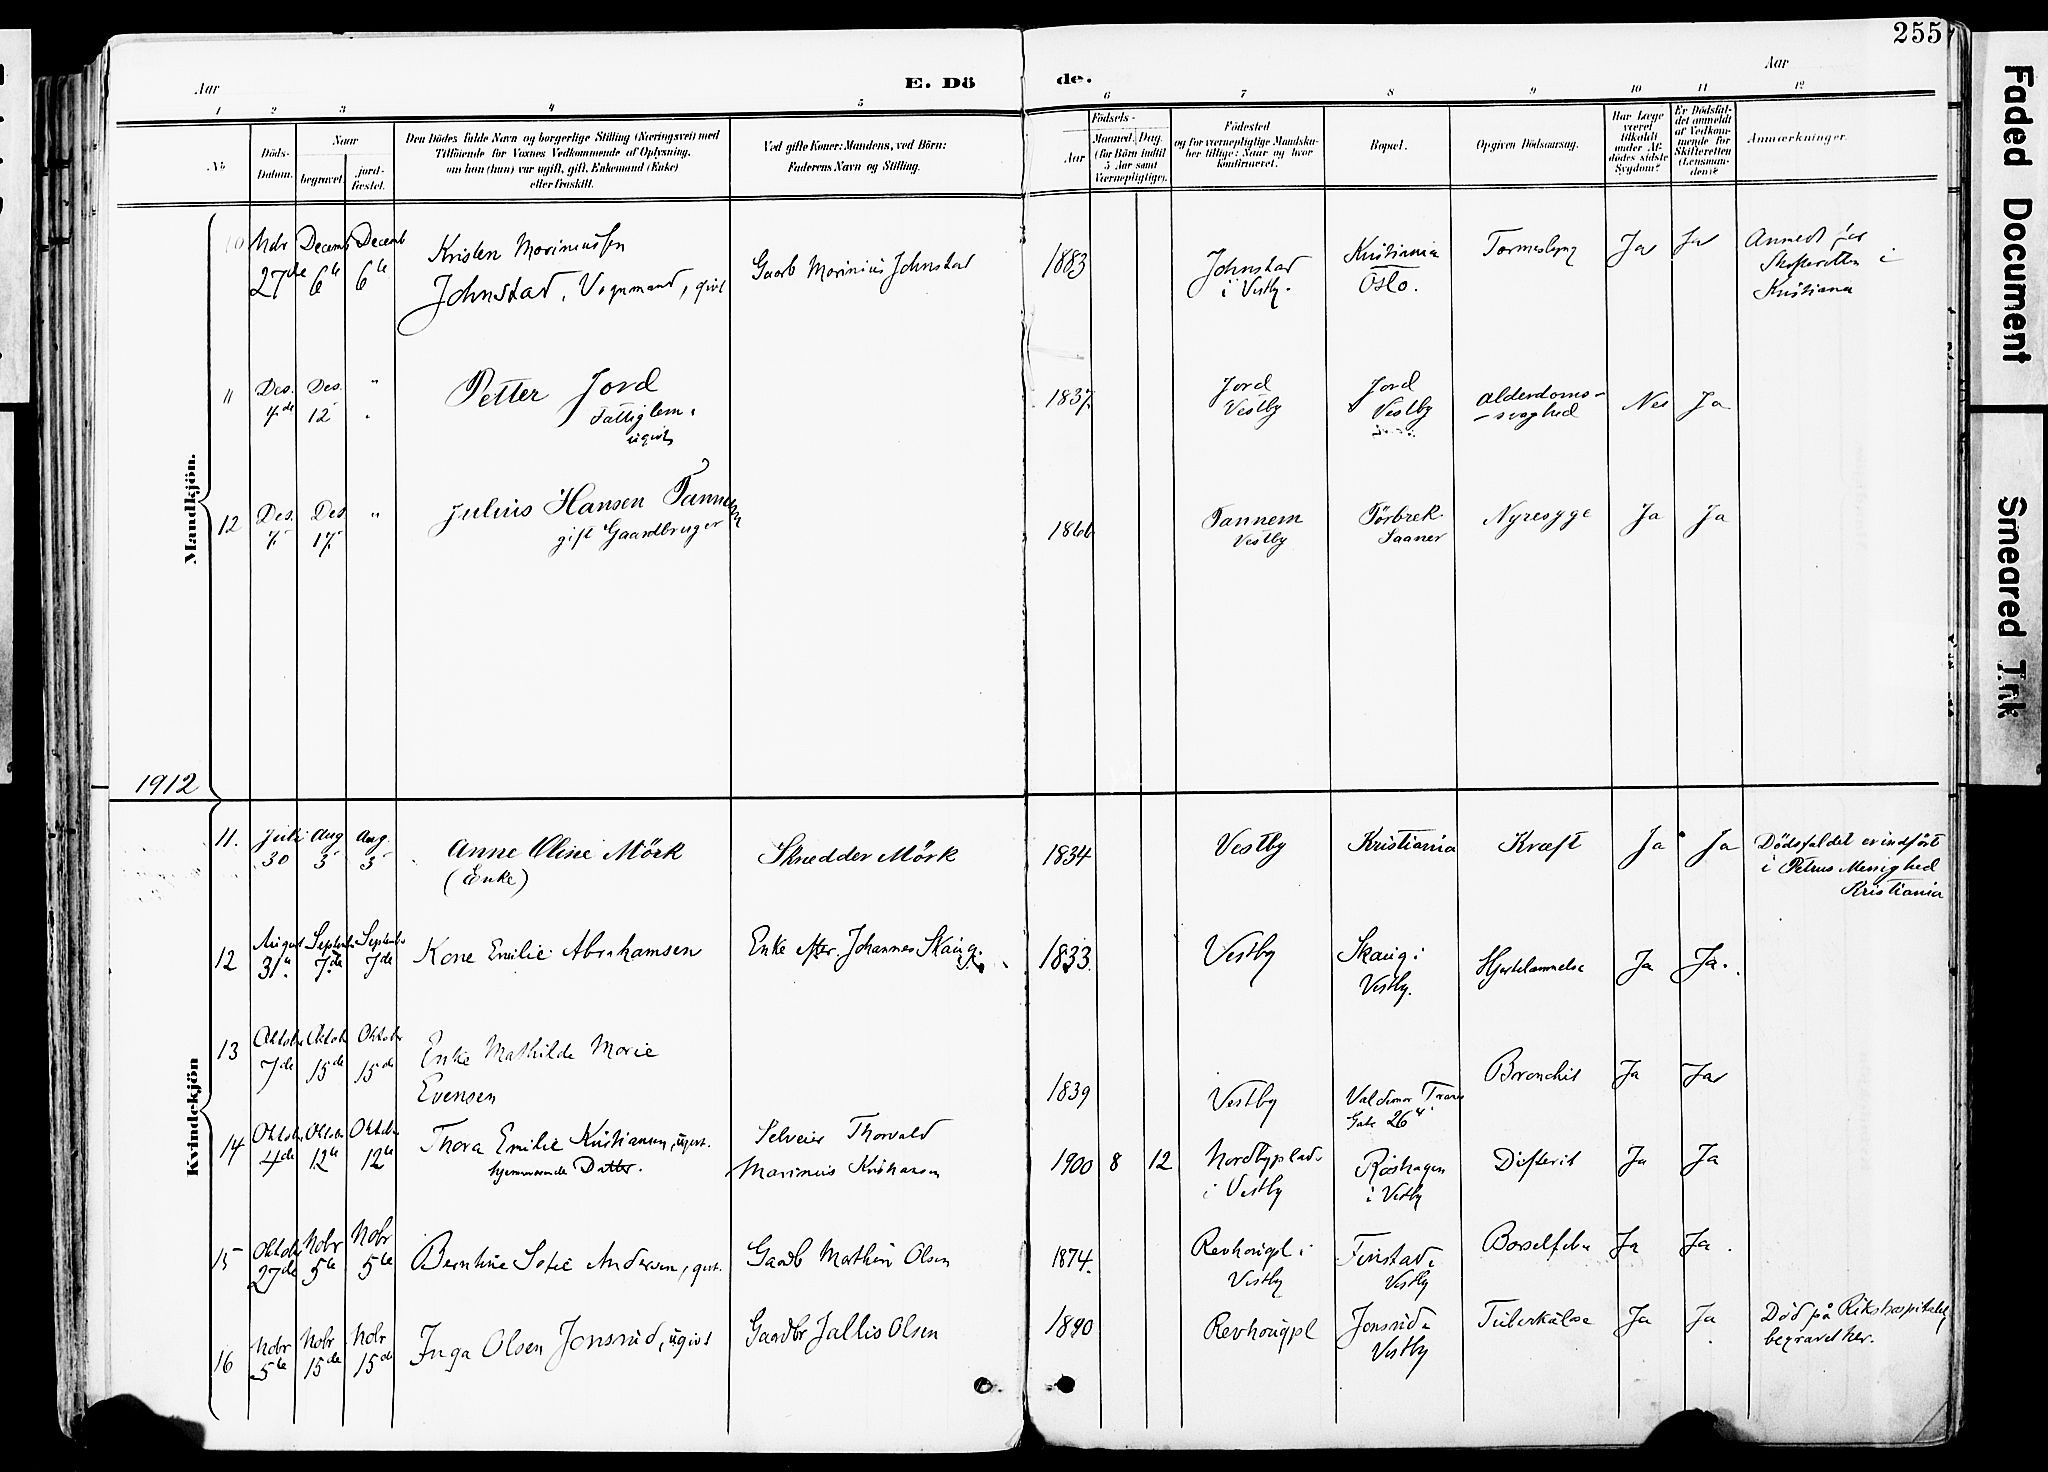 255
Aar
E. Dö
de.
Aar
1 2 3 4 5 6 7 8 9 10 11 12
No
Döds-Datum.
Naar
begravet.
jord-fæstet.
Den Dödes fulde Navn og borgerlige Stilling (Næringsvei) med
Tilföiende for Voxnes Vedkommende af Oplysning,
om han (hun) var ugift, gift, Enkemand (Enke)
eller fraskilt.
Ved gifte Koner: Mandens, ved Börn:
Faderens Navn og Stilling.
Födsels-
Aar
Maaned. Dag.
(for Börn indtil
5 Aar samt
Værnepligtige).
Födested
og for værnepligtige Mandska-
ber tillige: Naar og hvor
konfirmeret.
Bopæl.
Opgiven Dödsaarsag.
Har Læge
været
tilkaldt
under Af-
dödes sidste
Sygdom?
Er Dödsfal-
det anmeldt
af Vedkom-
mende for
Skifteretten
(Lensman-
den)?
Anmærkninger.
Mandkjön.
10 Nobr 27de Decemb 6te Decemb 6te Kristen Mariniussen
Johnstad, Vognmand, gift Gaarb Marinius Johnstad 1883 Johnstad
i Vestby. Kristiania
Oslo. Ja Ja
Skifteretten i
Kristiania
11 Des. 4de Des. 12 " Petter Jord
Fattiglem.
ugift 1837. Jord
Vestby Jord
Vestby Alderdoms-
-svaghed Nei Ja
12 Des. 7. Des. 17. " Julius Hansen Tannem
gift Gaardbruger 1866 Tannem
Vestby Törbræk.
Saaner Nyresyge Ja Ja
1912
Kvindekjön
11. Juli 30 Aug 3 Aug. 3 Anne Oline Mörk
(Enke) Skrædder Mörk 1834 Vestby Kristiania Kræft Ja Ja Dödsfaldet er indfört
i Petrus Menighed
Kristiania
12 August 31te Septembr 7de Septembr 7de Kone Emilie Abrahamsen Enke efter Johannes Skaug. 1833. Vestby Skaug i
Vestby. Hjertelammelse Ja Ja.
13 Oktobr 7de Oktobr 15de Oktobr 15de Enke Mathilde Marie
Evensen 1839 Vestby Valdemar Tranes
Gate 26 Bronchit Ja Ja
14 Oktobr 4de Oktobr 12te Oktobr 12te Thora Emilie Kristiansen, ugift.
hjemmeværende Datter. Selveier Thorvald
Marinius Kristiansen 1900 8 12 Nordbyplads
i Vestby Röshagen
i Vestby Difterit Ja Ja
15 Oktobr 27de Nobr 5te Nobr 5te Berntine Sofie Andersen, gift. Gaardb Marthin Olsen 1874. Revhougpl i
Vestby Finstad i
Vestby Barselfeber Ja Ja.
16 Nobr 5te Nobr 15de Nobr 15de Inga Olsen Jonsrud, ugift Gaardbr Jallis Olsen 1890 Revhougpl Jonsrud i
Vestby Tuberkulose Ja Ja Död på Rikshospitalet,
begravet her.
Faded Document
Smeared Ink